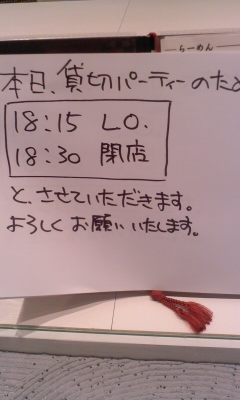 らーめん
本日、貸切パーティーのため
18:15 L.O.
18:30 閉店
と、させていただきます。
よろしくお願いいたします。